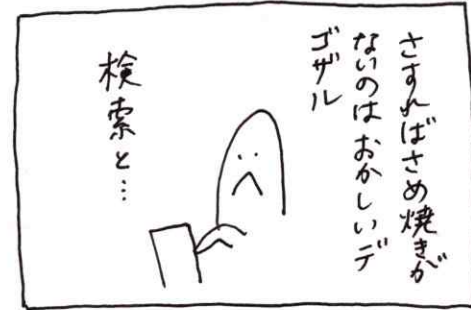 さすればさめ焼きが
ないのはおかしいデ
ゴザル
検索と…